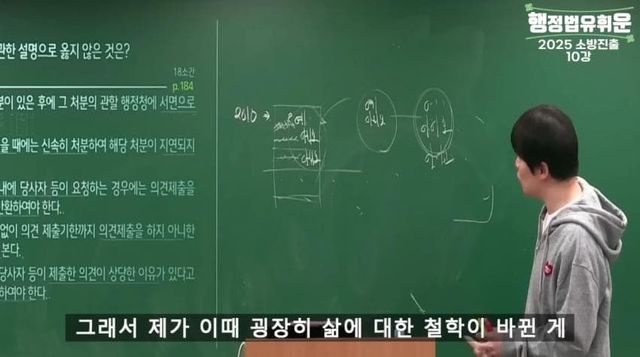 행정법유휘운
2025 소방진출
10강
관한 설명으로 옳지 않은 것은?
18소간
p.184
분이 있은 후에 그 처분의 관할 행정청에 서면으로
을 때에는 신속히 처분하여 해당 처분이 지연되지
내에 당사자 등이 요청하는 경우에는 의견제출을
반환하여야 한다.
없이 의견 제출기한까지 의견제출을 하지 아니한
본다.
당사자 등이 제출한 의견이 상당한 이유가 있다고
하여야 한다.
2010
그래서 제가 이때 굉장히 삶에 대한 철학이 바뀐 게